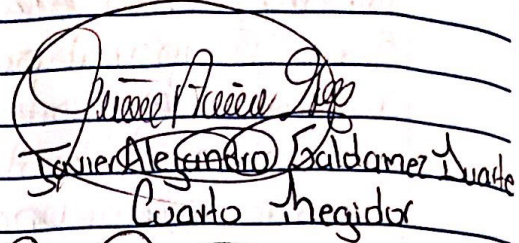 Javier Alejandro Galdamez Duarte
Cuarto Regidor